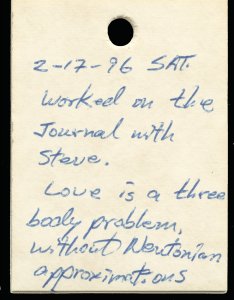 2-17-96 SAT.
Worked on the
Journal with
Steve.
Love is a three
body problem,
without Newtonian
approximations